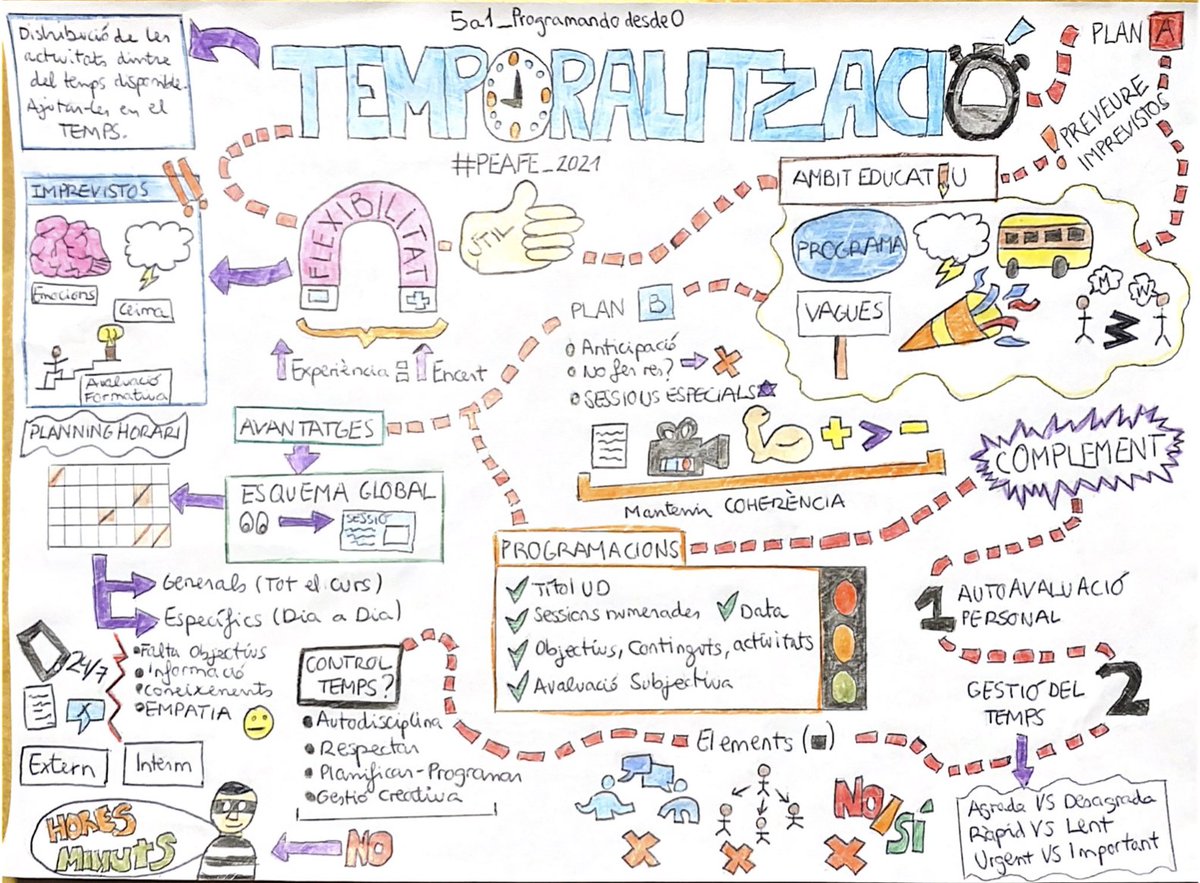 5a1_Programando desde 0
TEMPORALITZACIÓ
#PEAFE_2021
Distribució de les
activitats dintre
del temps disponible.
Ajustar-les en el
TEMPS.
PLAN A
! PREVEURE
IMPREVISTOS
AMBIT EDUCATIU
PROGRAMA
VAGUES
M
W
IMPREVISTOS
!!
Emocions
Clima
Avaluació
Formativa
FLEXIBILITAT
ÚTIL
Experiència = Encert
PLAN B
Anticipació
No fer res? → X
SESSIONS ESPECIALS
+ > -
Mantenir COHERÈNCIA
COMPLEMENT
PLANNING HORARI
AVANTATGES
ESQUEMA GLOBAL
SESSIÓ
Generals (Tot el curs)
Específics (Dia a Dia)
PROGRAMACIONS
Títol UD
Sessions numerades
Data
Objectius, Continguts, activitats
Avaluació Subjectiva
1 AUTOAVALUACIÓ
PERSONAL
2 GESTIÓ DEL
TEMPS
24/7
X
Falta Objectius
Informació
Coneixements
EMPATIA
Extern
Intern
CONTROL
TEMPS?
Autodisciplina
Respectar
Planificar-Programar
Gestió Creativa
Elements
NO/SÍ
X
X
X
Agrada VS Desagrada
Ràpid VS Lent
Urgent VS Important
HORES
MINUTS
NO